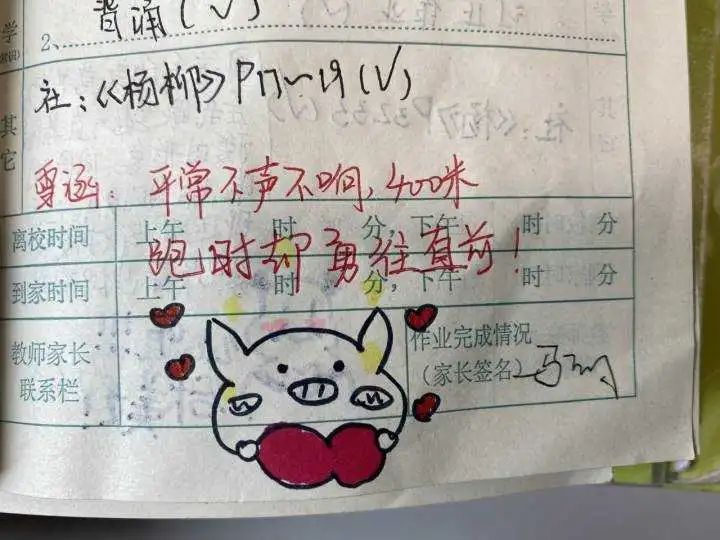 学
2、背诵(√)
其它
社：《杨柳》P17~19(√)
雪涵：平常不声不响,400米
跑时却勇往直前！
离校时间 上午 时 分，下午 时 分
到家时间 上午 时 分，下午 时 分
教师家长联系栏
作业完成情况
（家长签名）